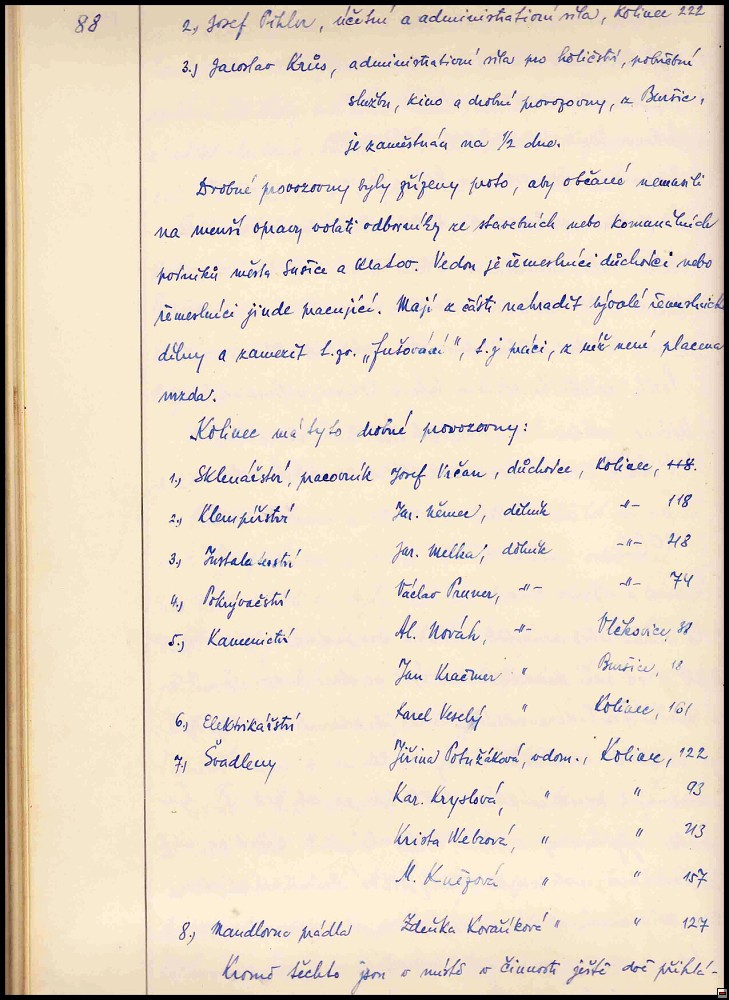 88
2.) Josef Pihler, účetní a administrativní síla, Kolinec 222
3.) Jaroslav Krůs, administrativní síla pro holičství, pohřební
službu, kino a drobné provozovny, z Buršic,
je zaměstnán na 1/2 dne.
Drobné provozovny byly zřízeny proto, aby občané nemusili
na menší opravy volati odborníky ze stavebních nebo komunálních
podniků města Sušice a Klatov. Vedou je řemeslníci důchodci nebo
řemeslníci jinde pracující. Mají z části nahradit bývalé řemeslnické
dílny a zamezit t.zv. „fušování", t.j práci, z níž není placena
mzda.
Kolinec má tyto drobné provozovny:
1.) Sklenářství, pracovník Josef Vrčan, důchodce, Kolinec, 118.
2.) Klempířství Jar. Němec, dělník -"- 118
3.) Instalaterství Jar. Melka, dělník -"- 218
4.) Pokrývačství Václav Pruner, -"- -"- 74
5.) Kamenictví Al. Novák, -"- Vlčkovice, 38
Jan Kračmer " Buršice, 18
6.) Elektrikářství Karel Veselý " Kolinec, 161
7.) Švadleny Jiřina Potužáková, v dom., Kolinec, 122
Kar. Kryslová, " " 93
Krista Webrová, " " 213
M. Knězová " " 157
8.) Mandlovna prádla Zdeňka Kovaříková " " 127
Kromě těchto jsou v místě v činnosti ještě dvě přihlá-